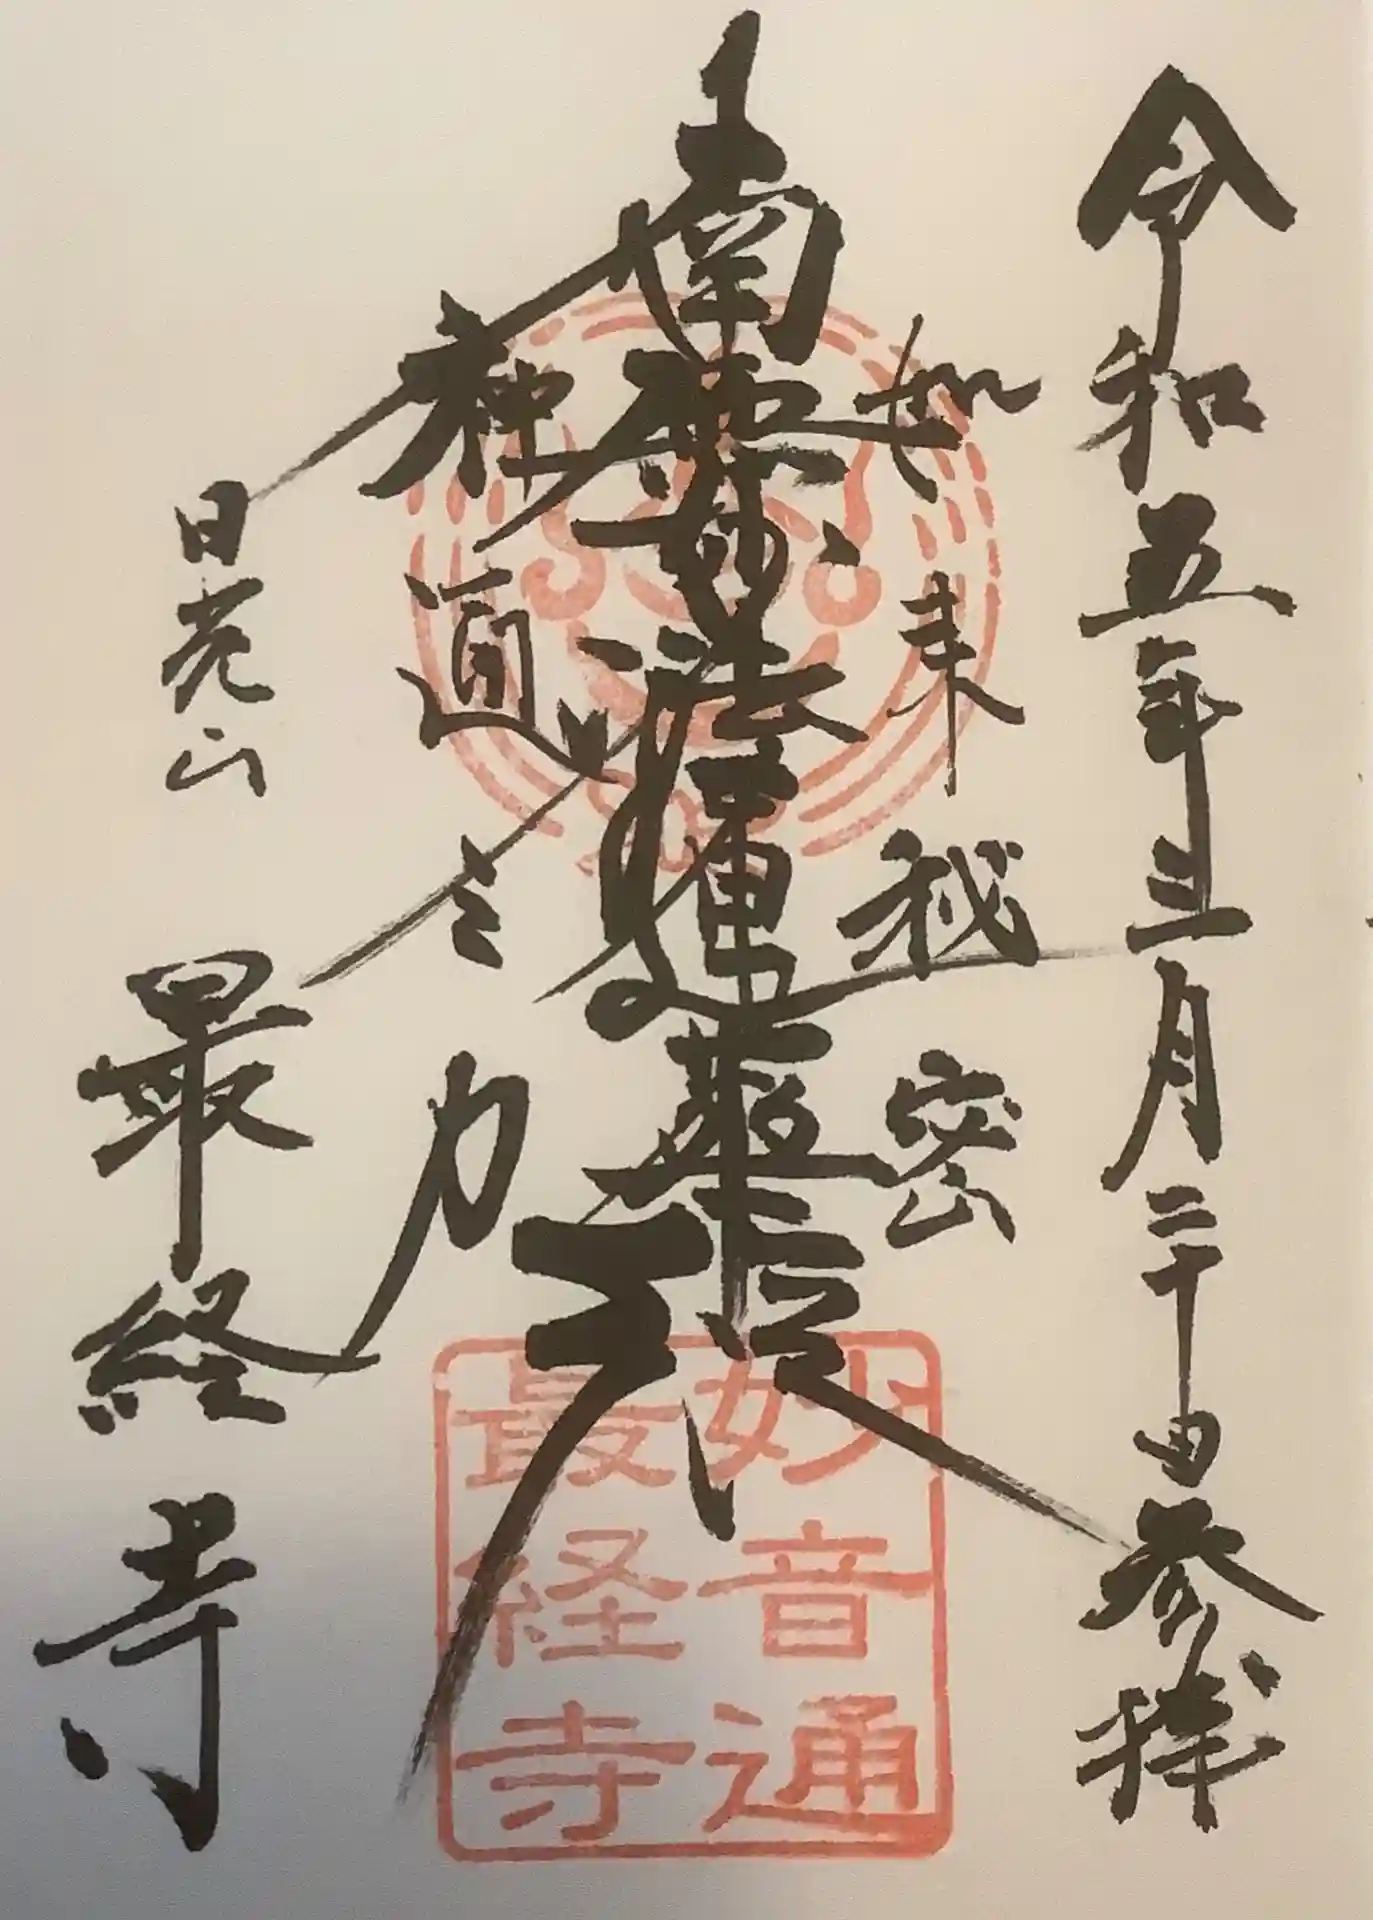 令和五年三月二十日参拝
如来秘密
南無妙法蓮華経
神通之力
日荘山
最経寺
妙音通
最経寺